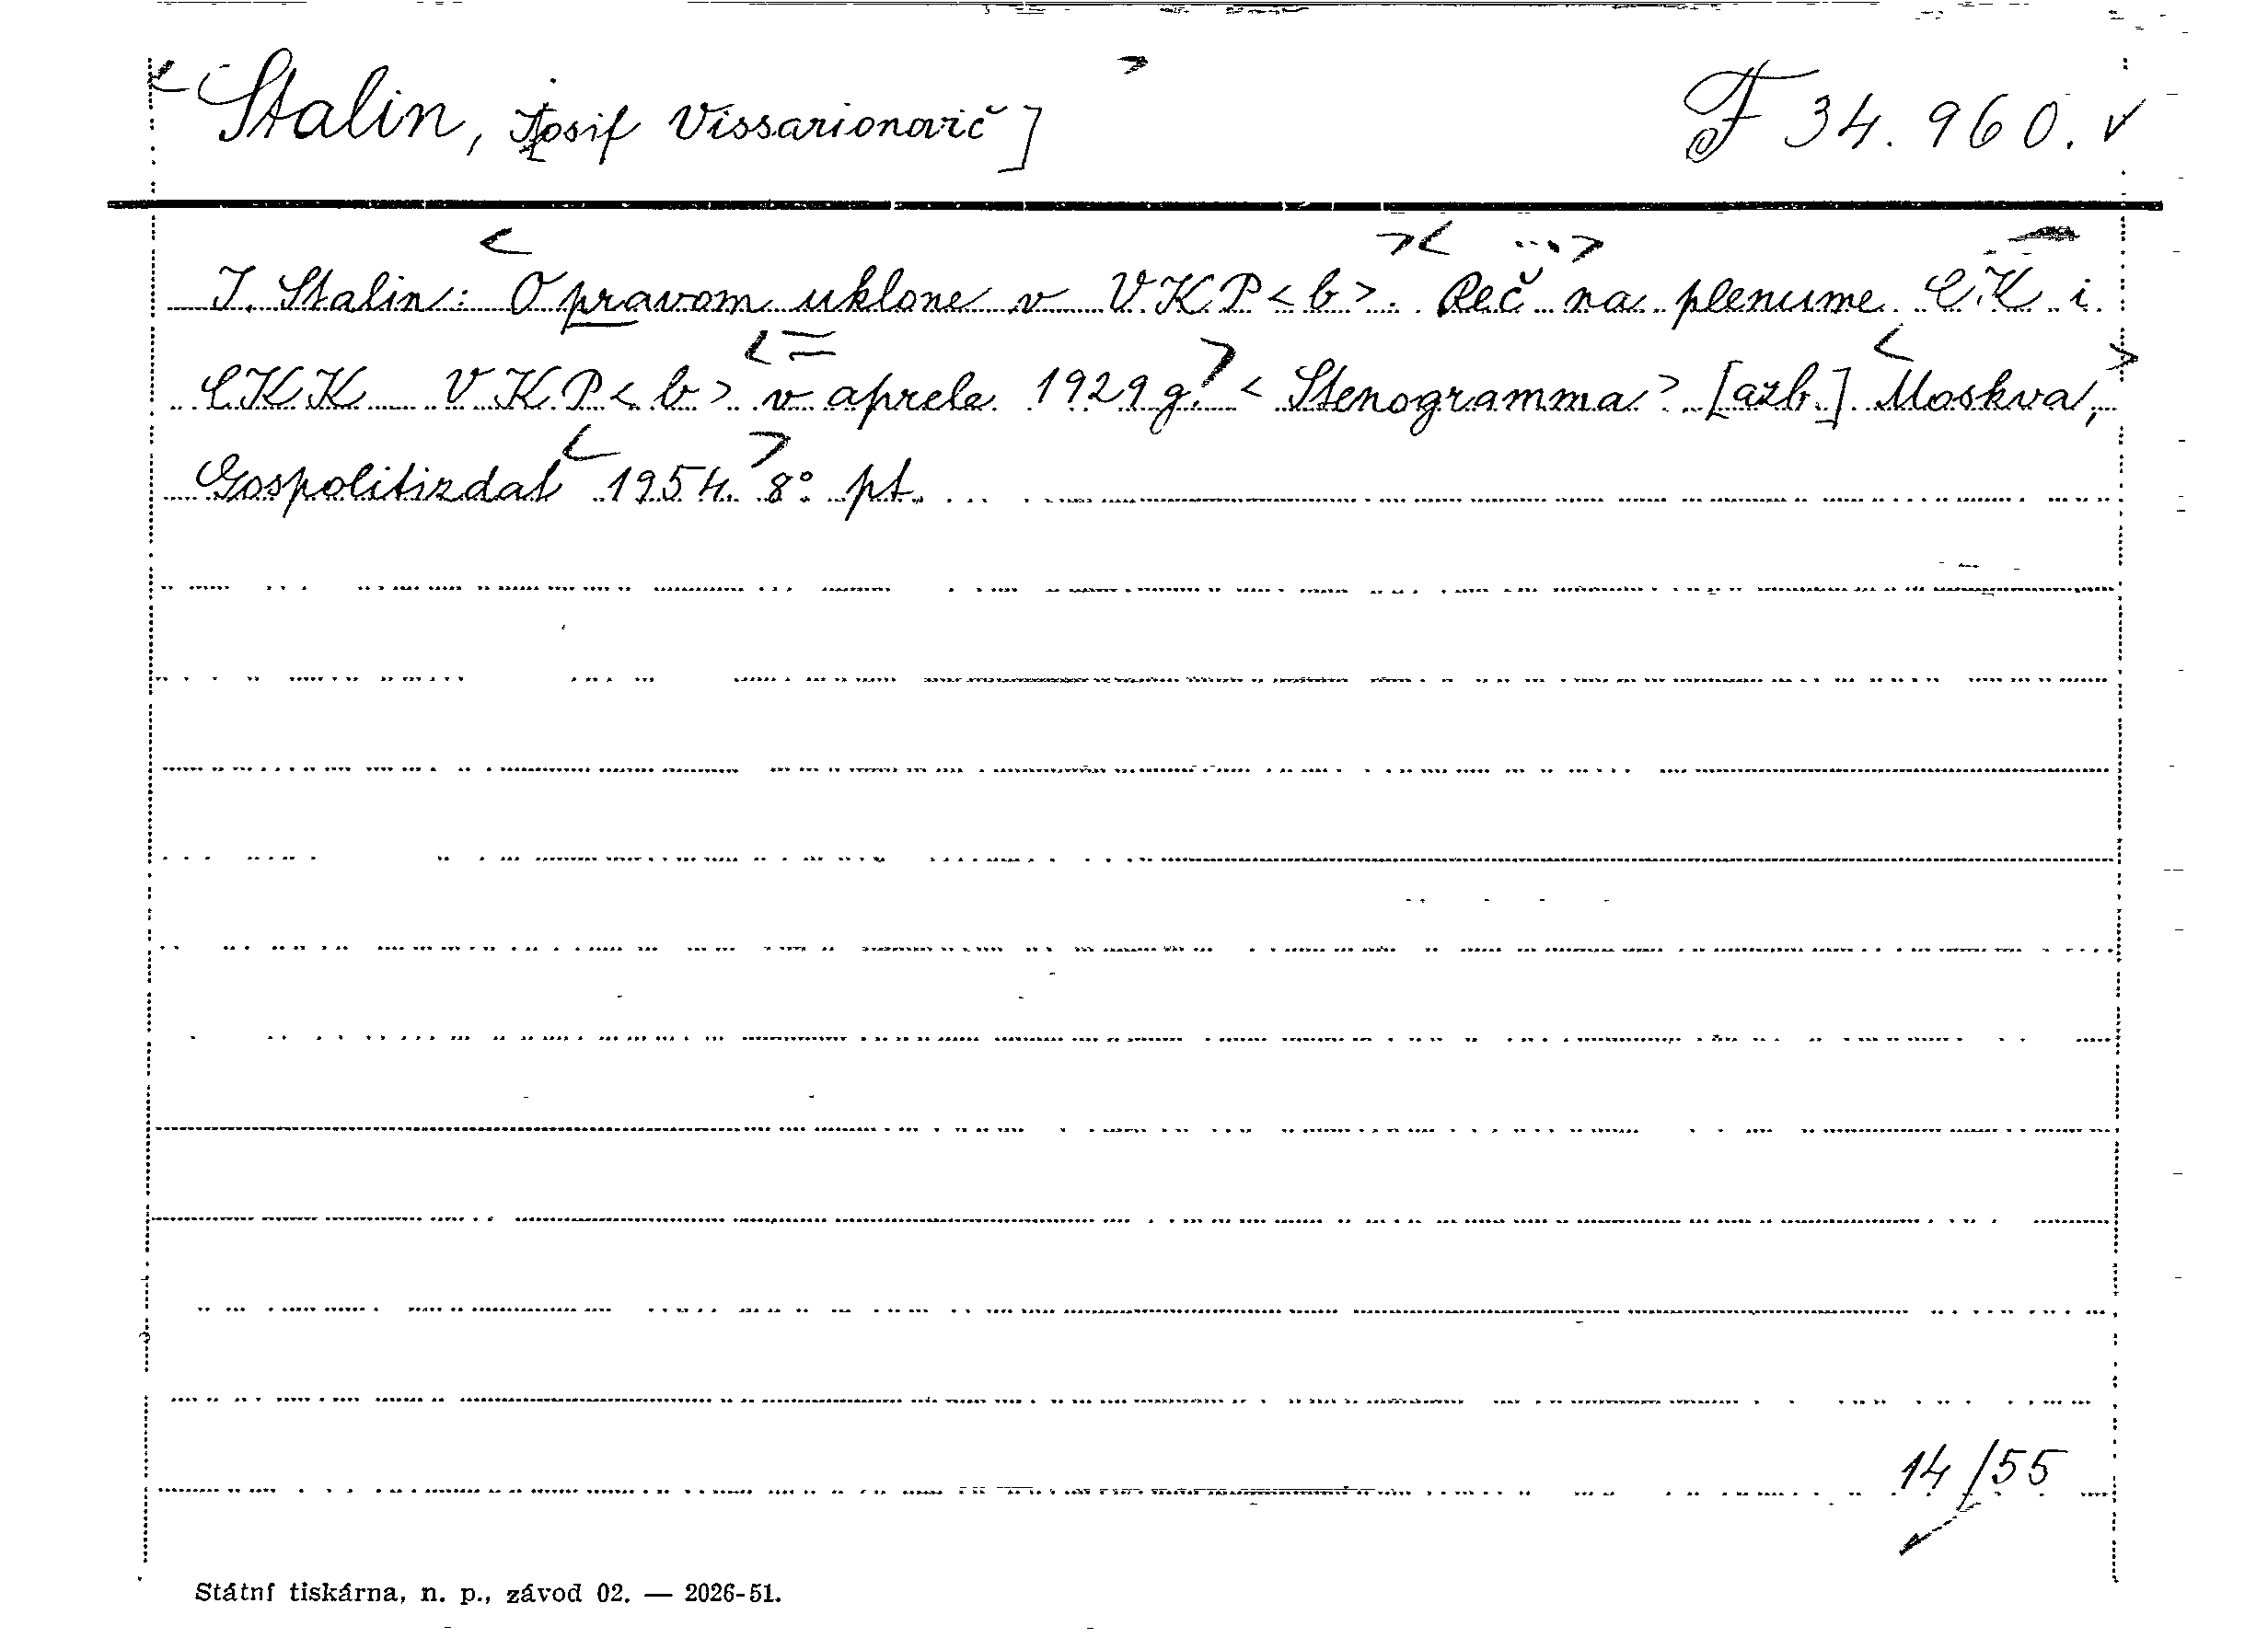 Stalin, Iosif Vissarionovič] F 34.960. v
I. Stalin: O pravom uklone v VKP<b>. Reč na plenume CK i
CKK VKP<b> v aprele 1929 g. <Stenogramma> [azb.] Moskva,
Gospolitizdat 1954. 8° pt.
14/55
Státní tiskárna, n. p., závod 02. — 2026-51.